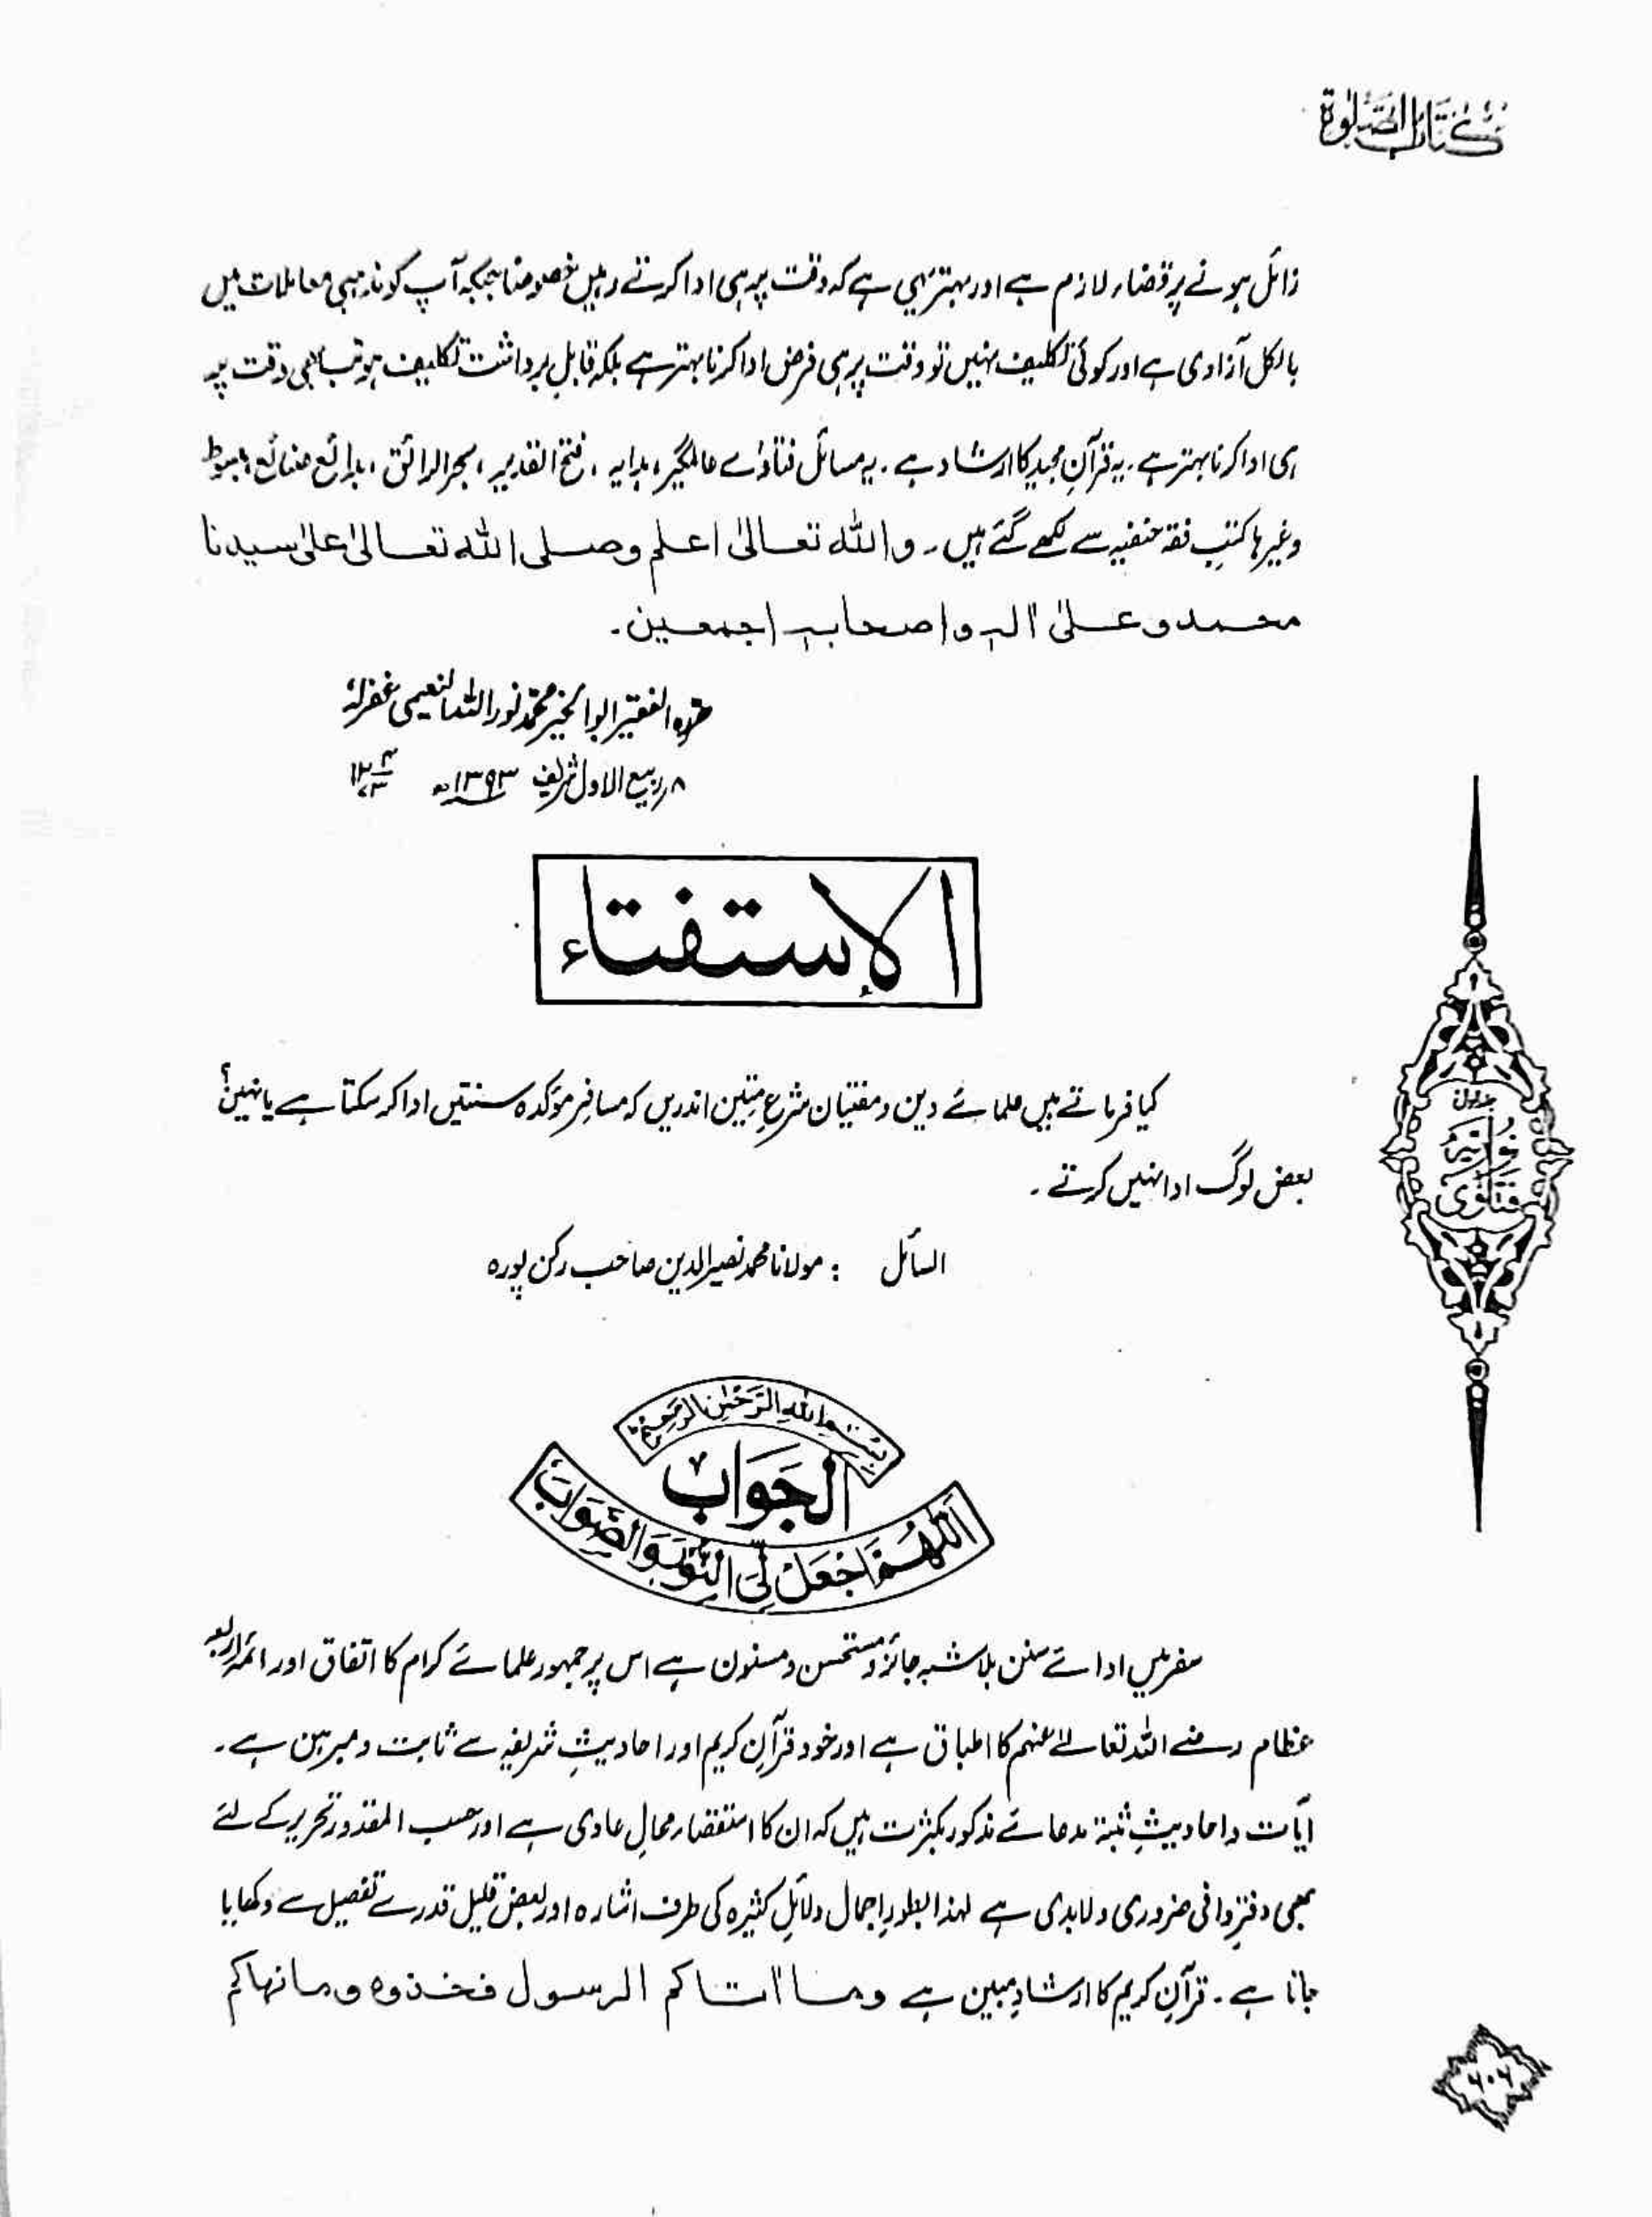 كتاب الصلوٰة
زائل ہونے پر قضاء لازم ہے اور بہتر یہی ہے کہ وقت پر ہی ادا کرتے رہیں خصوصاً جبکہ آپ کو مذہبی معاملات میں
بالکل آزادی ہے اور کوئی تکلیف نہیں تو وقت پر ہی فرض ادا کرنا بہتر ہے بلکہ قابلِ برداشت تکلیف ہو تب بھی وقت پر
ہی ادا کرنا بہتر ہے۔ یہ قرآنِ مجید کا ارشاد ہے۔ یہ مسائل فتاوٰے عالمگیر، ہدایہ، فتح القدیر، بحر الرائق، بدائع صنائع، مبسوط
وغیرہا کتبِ فقہ حنفیہ سے لکھے گئے ہیں۔ واللہ تعالیٰ اعلم وصلی اللہ تعالیٰ علیٰ سیدنا
محمد وعلیٰ اٰلہٖ واصحابہٖ اجمعین۔
حررہ الفقیر ابو الخیر محمد نور اللہ النعیمی غفرلہٗ
۸ ربیع الاول شریف ۱۳۹۳ھ ۱۲/۴/۷۳
الإستفتاء
کیا فرماتے ہیں علمائے دین و مفتیان شرعِ متین اندریں کہ مسافر مؤکدہ سنتیں ادا کر سکتا ہے یا نہیں؟
بعض لوگ ادا نہیں کرتے۔
السائل : مولانا محمد نصیر الدین صاحب رکن پورہ
جلد اول
نوریہ
فتاوٰی
بسم الله الرحمٰن الرحيم
الجواب
اللّٰهم اجعل لی النور والصواب
سفر میں ادائے سنن بلا شبہ جائز و مستحسن و مسنون ہے اس پر جمہور علمائے کرام کا اتفاق اور ائمہ اربعہ
عظام رضے اللہ تعالےٰ عنہم کا اطباق ہے اور خود قرآنِ کریم اور احادیثِ شریفہ سے ثابت و مبرہن ہے۔
آیات و احادیثِ مثبتۂ مدعائے مذکور بکثرت ہیں کہ ان کا استقصاء محالِ عادی ہے اور حسب المقدور تحریر کے لئے
بھی دفترِ وافی ضروری و لابدی ہے لہذا بطورِ اجمال دلائلِ کثیرہ کی طرف اشارہ اور بعض قلیل قدرے تفصیل سے دکھایا
جاتا ہے۔ قرآنِ کریم کا ارشادِ مبین ہے وما اٰتاکم الرسول فخذوہ وما نہاکم
۶۰۶